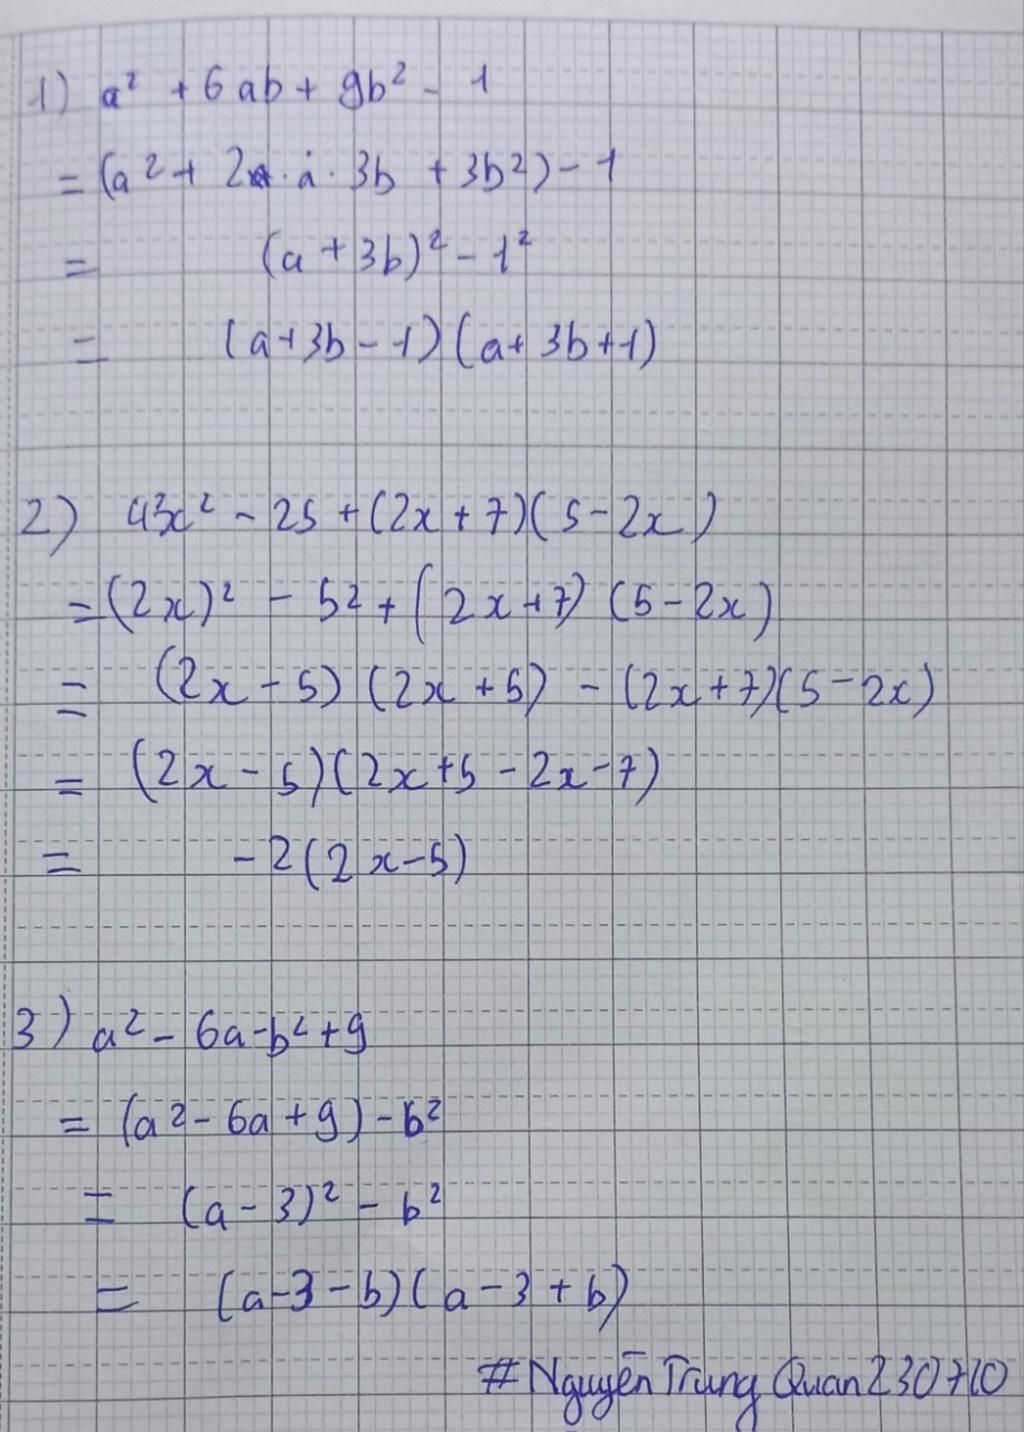 1) a² + 6ab + 9b² - 1
= (a² + 2 · a · 3b + 3b²) - 1
= (a + 3b)² - 1²
= (a + 3b - 1)(a + 3b + 1)
2) 4x² - 25 + (2x + 7)(5 - 2x)
= (2x)² - 5² + (2x + 7) (5 - 2x)
= (2x - 5) (2x + 5) - (2x + 7)(5 - 2x)
= (2x - 5)(2x + 5 - 2x - 7)
= -2(2x - 5)
3) a² - 6a - b² + 9
= (a² - 6a + 9) - b²
= (a - 3)² - b²
= (a - 3 - b)(a - 3 + b)
# Nguyễn Trung Quan 230710